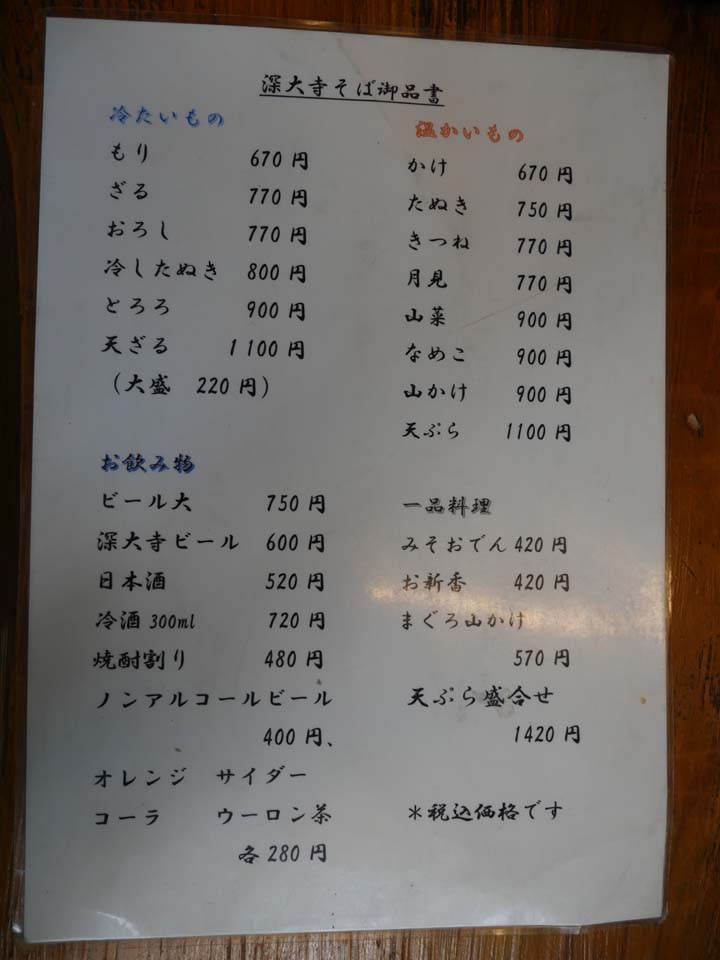 深大寺そば御品書
冷たいもの
もり 670円
ざる 770円
おろし 770円
冷したぬき 800円
とろろ 900円
天ざる 1100円
（大盛 220円）
温かいもの
かけ 670円
たぬき 750円
きつね 770円
月見 770円
山菜 900円
なめこ 900円
山かけ 900円
天ぷら 1100円
お飲み物
ビール大 750円
深大寺ビール 600円
日本酒 520円
冷酒300ml 720円
焼酎割り 480円
ノンアルコールビール
400円、
オレンジ サイダー
コーラ ウーロン茶
各280円
一品料理
みそおでん 420円
お新香 420円
まぐろ山かけ
570円
天ぷら盛合せ
1420円
＊税込価格です